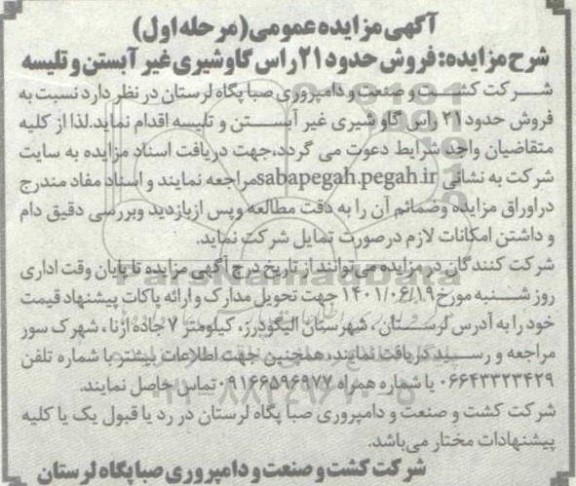 آگهی مزایده عمومی (مرحله اول)
شرح مزایده: فروش حدود ۲۱ راس گاو شیری غیر آبستن و تلیسه
شرکت کشت و صنعت و دامپروری صبا پگاه لرستان در نظر دارد نسبت به
فروش حدود ۲۱ راس گاو شیری غیر آبستن و تلیسه اقدام نماید.لذا از کلیه
متقاضیان واجد شرایط دعوت می گردد،جهت دریافت اسناد مزایده به سایت
شرکت به نشانی sabapegah.pegah.ir مراجعه نمایند و اسناد مفاد مندرج
دراوراق مزایده وضمائم آن را به دقت مطالعه وپس ازبازدید وبررسی دقیق دام
و داشتن امکانات لازم درصورت تمایل شرکت نماید.
شرکت کنندگان در مزایده می توانند از تاریخ درج آگهی مزایده تا پایان وقت اداری
روز شنبه مورخ ۱۴۰۱/۰۶/۱۹ جهت تحویل مدارک و ارائه پاکات پیشنهاد قیمت
خود را به آدرس لرستان ، شهرستان الیگودرز، کیلومتر ۷ جاده ازنا ، شهرک سور
مراجعه و رسید دریافت نمایند، همچنین جهت اطلاعات بیشتر با شماره تلفن
۰۶۶۴۳۳۲۳۴۲۹ یا شماره همراه ۰۹۱۶۶۵۹۶۹۷۷ تماس حاصل نمایند.
شرکت کشت و صنعت و دامپروری صبا پگاه لرستان در رد یا قبول یک یا کلیه
پیشنهادات مختار می باشد.
شرکت کشت و صنعت و دامپروری صبا پگاه لرستان
ParsNamadData